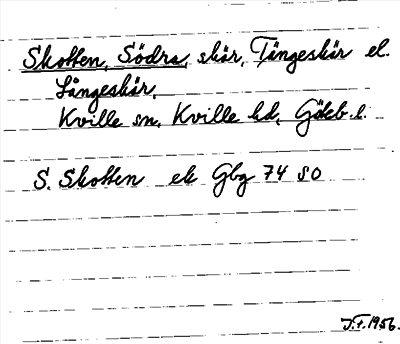 Skotten, Södra, skär, Tångeskär el.
Långeskär,
Kville sn, Kville hd, Göteb. l.
S. Skotten ek Gbg 74 SO
J.F. 1956.